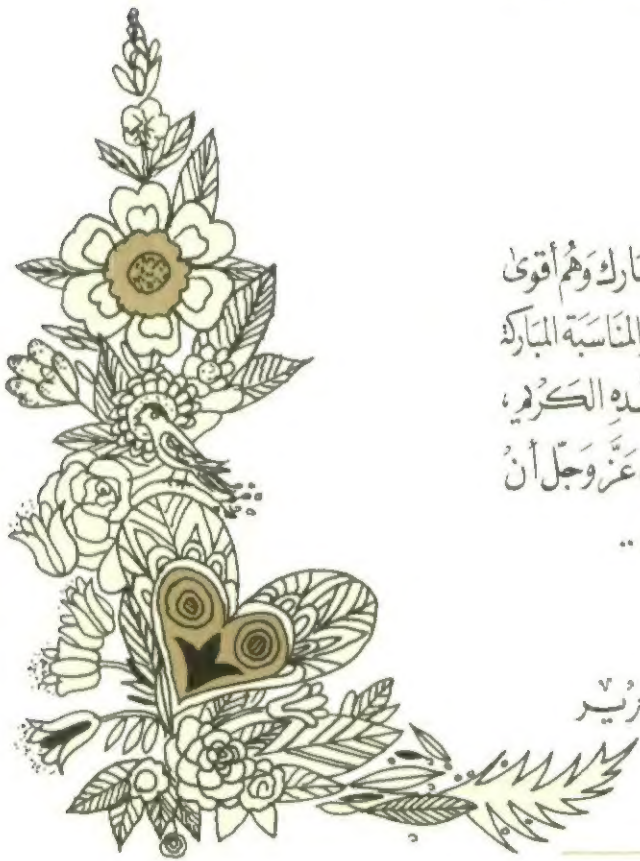 وَهُم أقوىٰ
المنَاسَبَة المبَاركة
الكَرْيمِ،
عَزَّ وَجَلّ أنْ
..